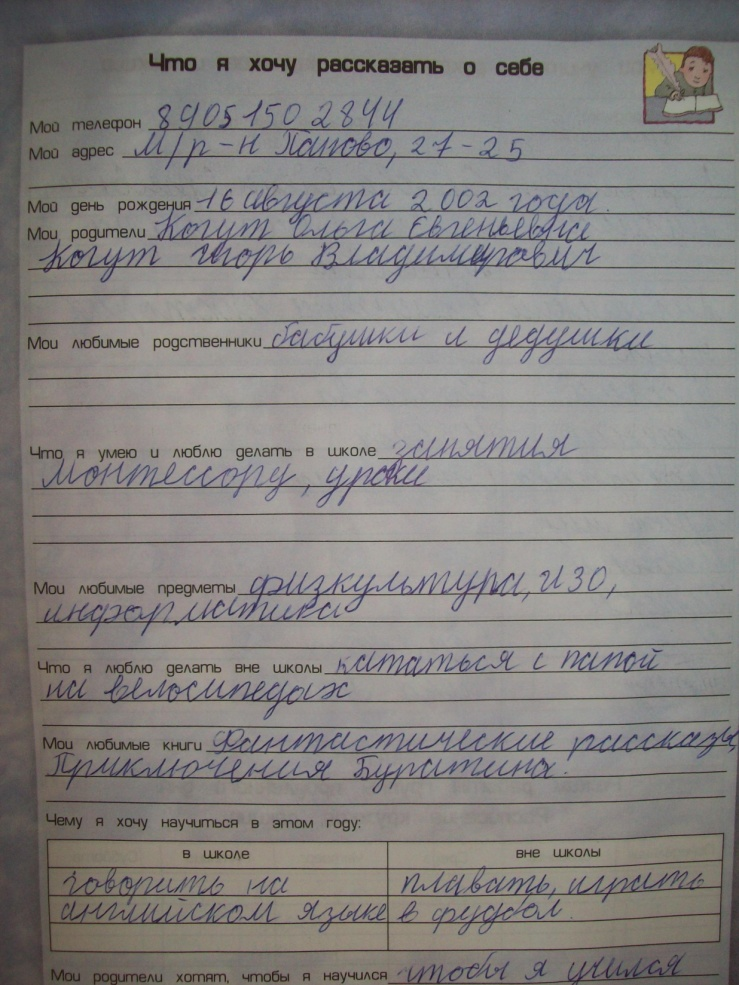 Что я хочу рассказать о себе
Мой телефон 8905 150 2844
Мой адрес м/р-н Попово, 27-25
Мой день рождения 16 августа 2002 года.
Мои родители Когут Ольга Евгеньевна
Когут Игорь Владимирович
Мои любимые родственники бабушки и дедушки
Что я умею и люблю делать в школе занятия
монтессори, уроки
Мои любимые предметы физкультура, ИЗО,
информатика
Что я люблю делать вне школы кататься с папой
на велосипедах
Мои любимые книги Фантастические рассказы,
Приключения Буратина.
Чему я хочу научиться в этом году:
в школе вне школы
говорить на плавать, играть
английском языке в фудбол.
Мои родители хотят, чтобы я научился чтобы я учился